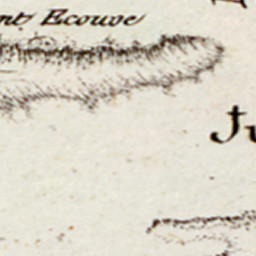 nt Ecouve
Ju